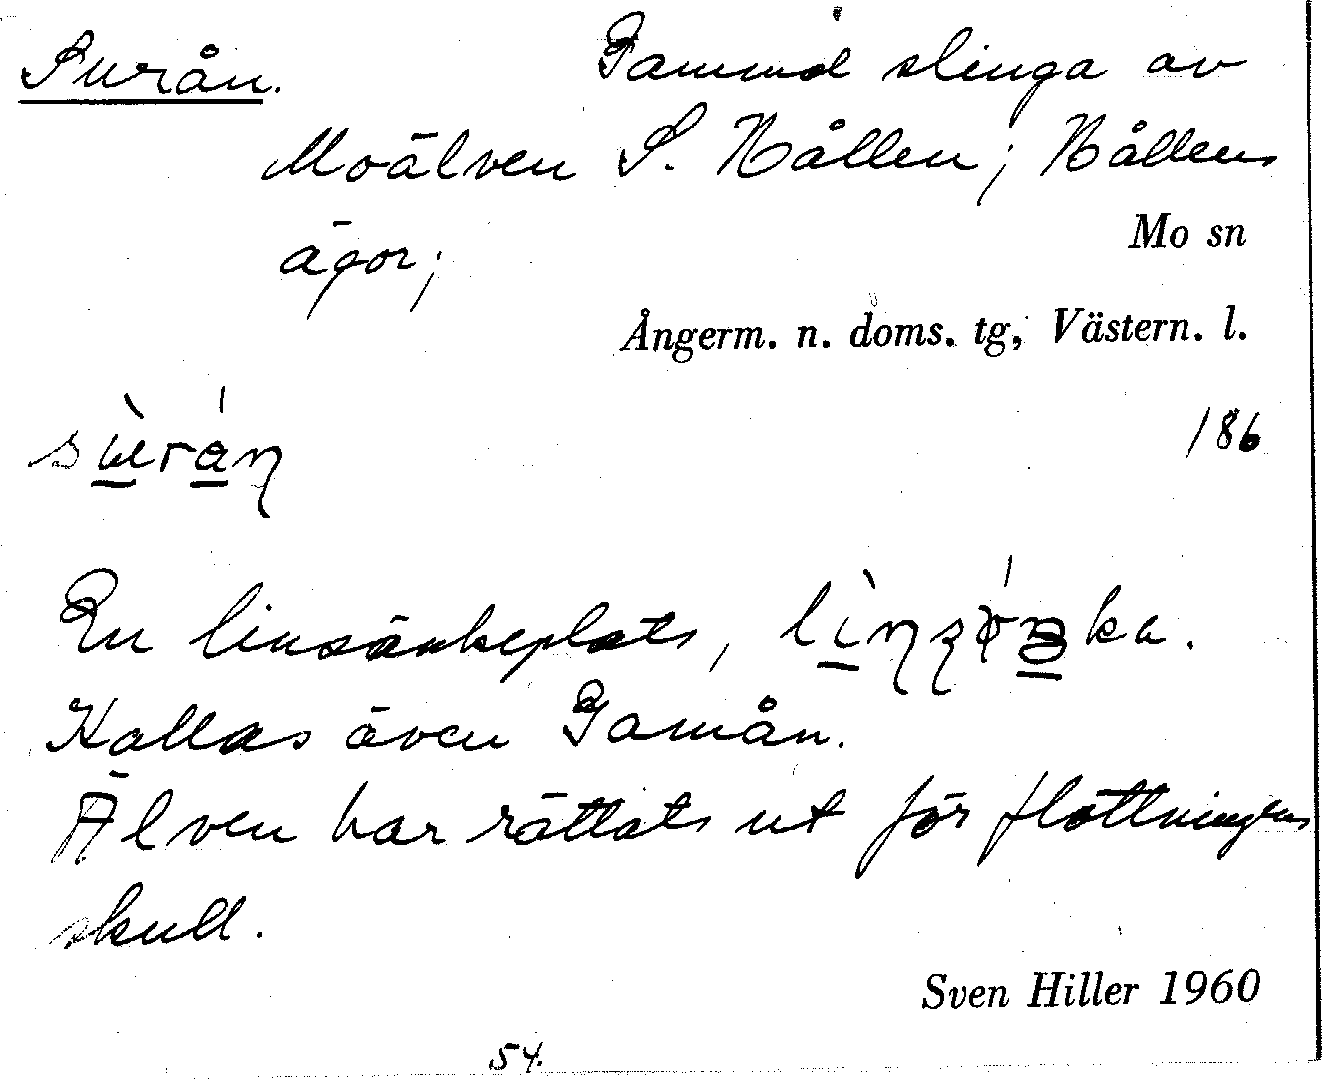 Surån. Gammal slinga av
Moälven S. Hållen; Hållens
ägor; Mo sn
Ångerm. n. doms. tg, Västern. l.
186
En linsänkeplats,
Kallas även Gamån.
Älven har rättats ut för flottningens
skull.
Sven Hiller 1960
54.